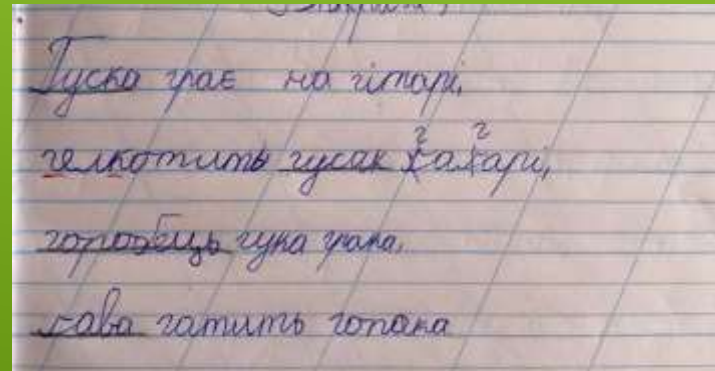 Гуска грає на гітарі,
гелкотить гусак гагарі,
горобець гука грака,
гава гатить гопака